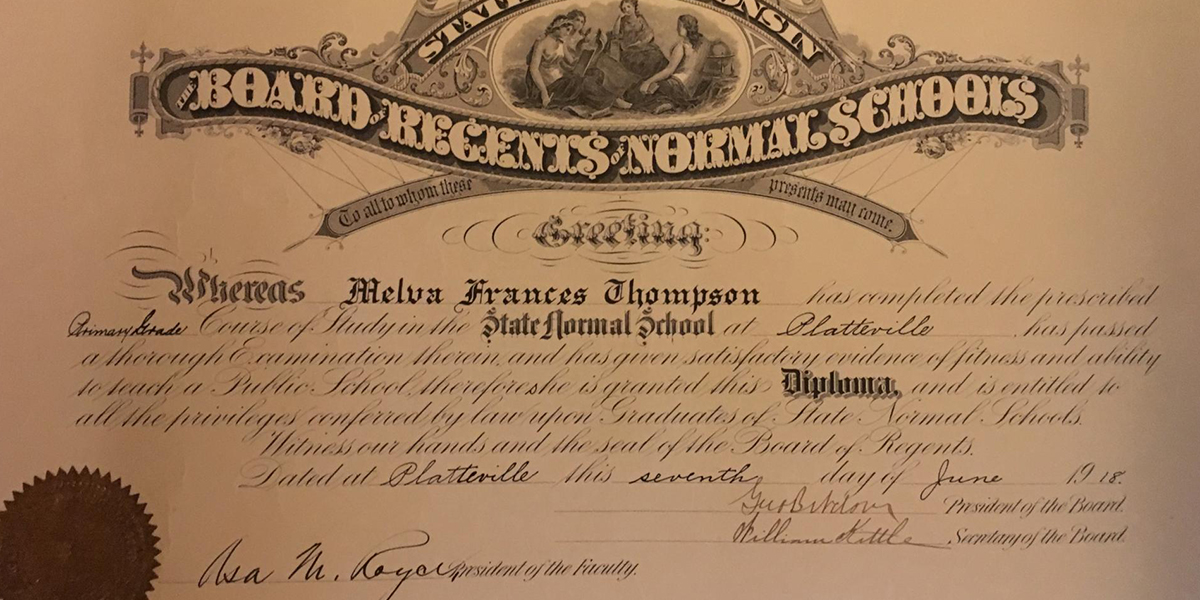 STATE WISCONSIN
THE BOARD OF REGENTS OF NORMAL SCHOOLS
To all to whom these presents may come.
Greeting:
Whereas Melva Frances Thompson has completed the prescribed
Primary Grade Course of Study in the State Normal School at Platteville has passed
a thorough Examination therein, and has given satisfactory evidence of fitness and ability
to teach a Public School, therefore she is granted this Diploma, and is entitled to
all the privileges conferred by law upon Graduates of State Normal Schools.
Witness our hands and the seal of the Board of Regents.
Dated at Platteville this seventh day of June 1918.
President of the Board.
William Kittle Secretary of the Board.
Asa M. Royce President of the Faculty.